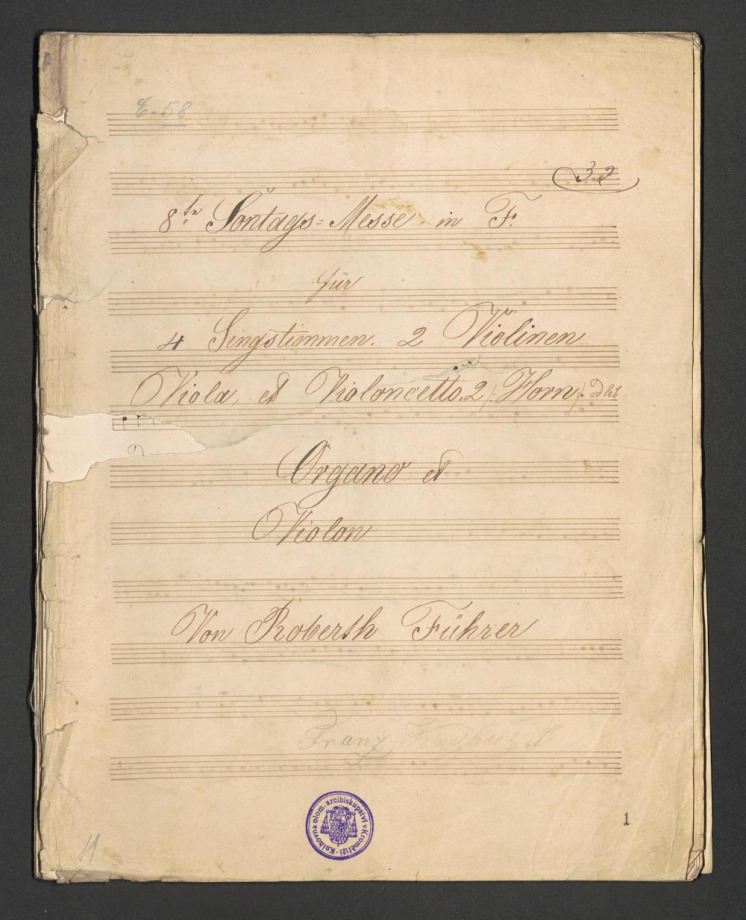 E-58
32
8te Sontags=Messe in F.
für
4 Singstimmen. 2 Violinen
Viola, et Violoncello. 2 /: Horn :/ ad lib
Organo et
Violon
Von Roberth Führer
Franz
Knihovna olom. arcibiskupství v Kroměříži
1
11